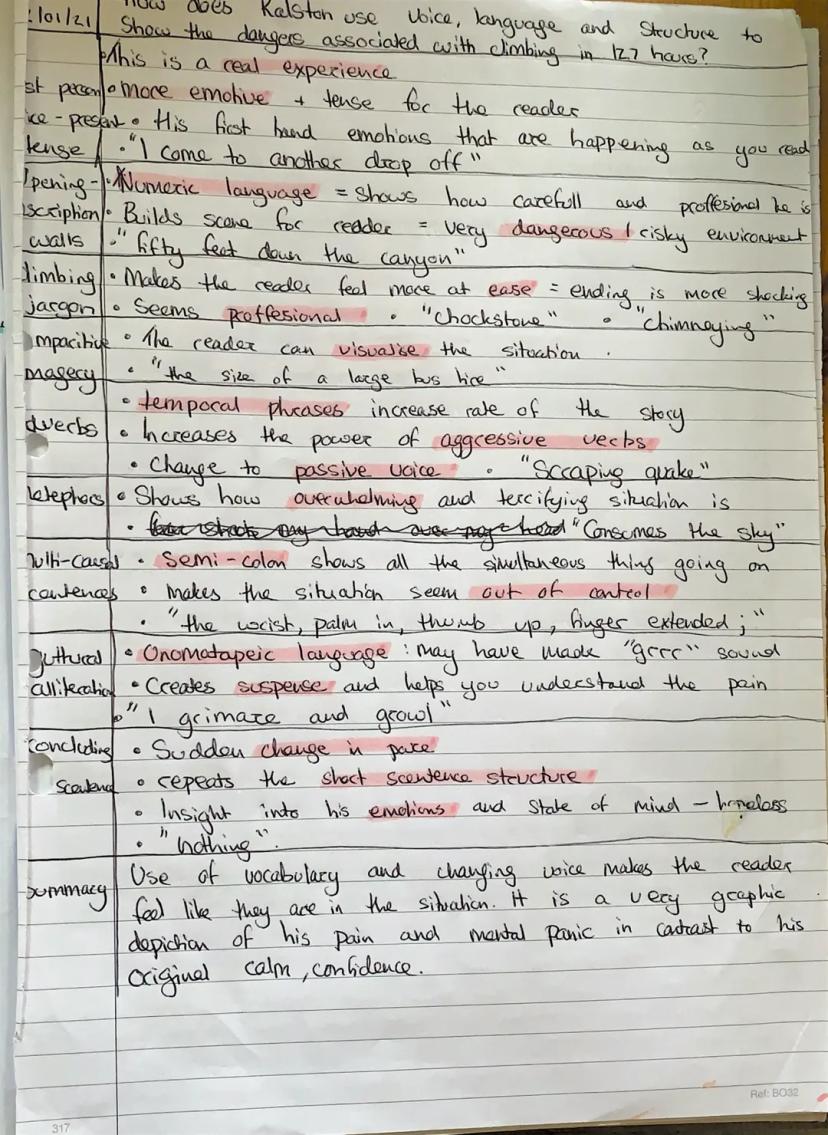 how does Ralston use voice, language and structure to
:/01/21 Show the dangers associated with climbing in 127 hours?
This is a real experience
st person • more emotive + tense for the reader
ice - present • His first hand emotions that are happening as you read
tense • "I come to another drop off"
pening - • Numeric language = shows how carefull and proffesional he is
scription • Builds scane for reader = very dangerous / risky environment
walls • "fifty feet down the canyon"
limbing • Makes the reader feel more at ease = ending is more shocking
jargon • Seems proffesional • "chockstone" • "chimneying"
mparitive • The reader can visualise the situation.
magery • "the size of a large bus tire"
• temporal phrases increase rate of the story
dverbs • Increases the power of aggressive verbs
• Change to passive voice • "Scraping quake"
Metephors • Shows how overwhelming and terrifying situation is
• "Consumes the sky"
ulti-causal • Semi-colon shows all the simultaneous thing going on
centences • Makes the situation seem out of control
• "the wrist, palm in, thumb up, finger extended;"
guttural • Onomatapeic language : may have made "grrr" sound
alliteration • Creates suspense and helps you understand the pain
• "I grimace and growl"
concluding • Sudden change in pace
Scentence • repeats the short scentence structure
• Insight into his emotions and state of mind - hopeless
• "nothing".
summary Use of vocabulary and changing voice makes the reader
feel like they are in the situation. It is a very graphic
depiction of his pain and mental panic in contrast to his
original calm, confidence.
Ref: BO32
317